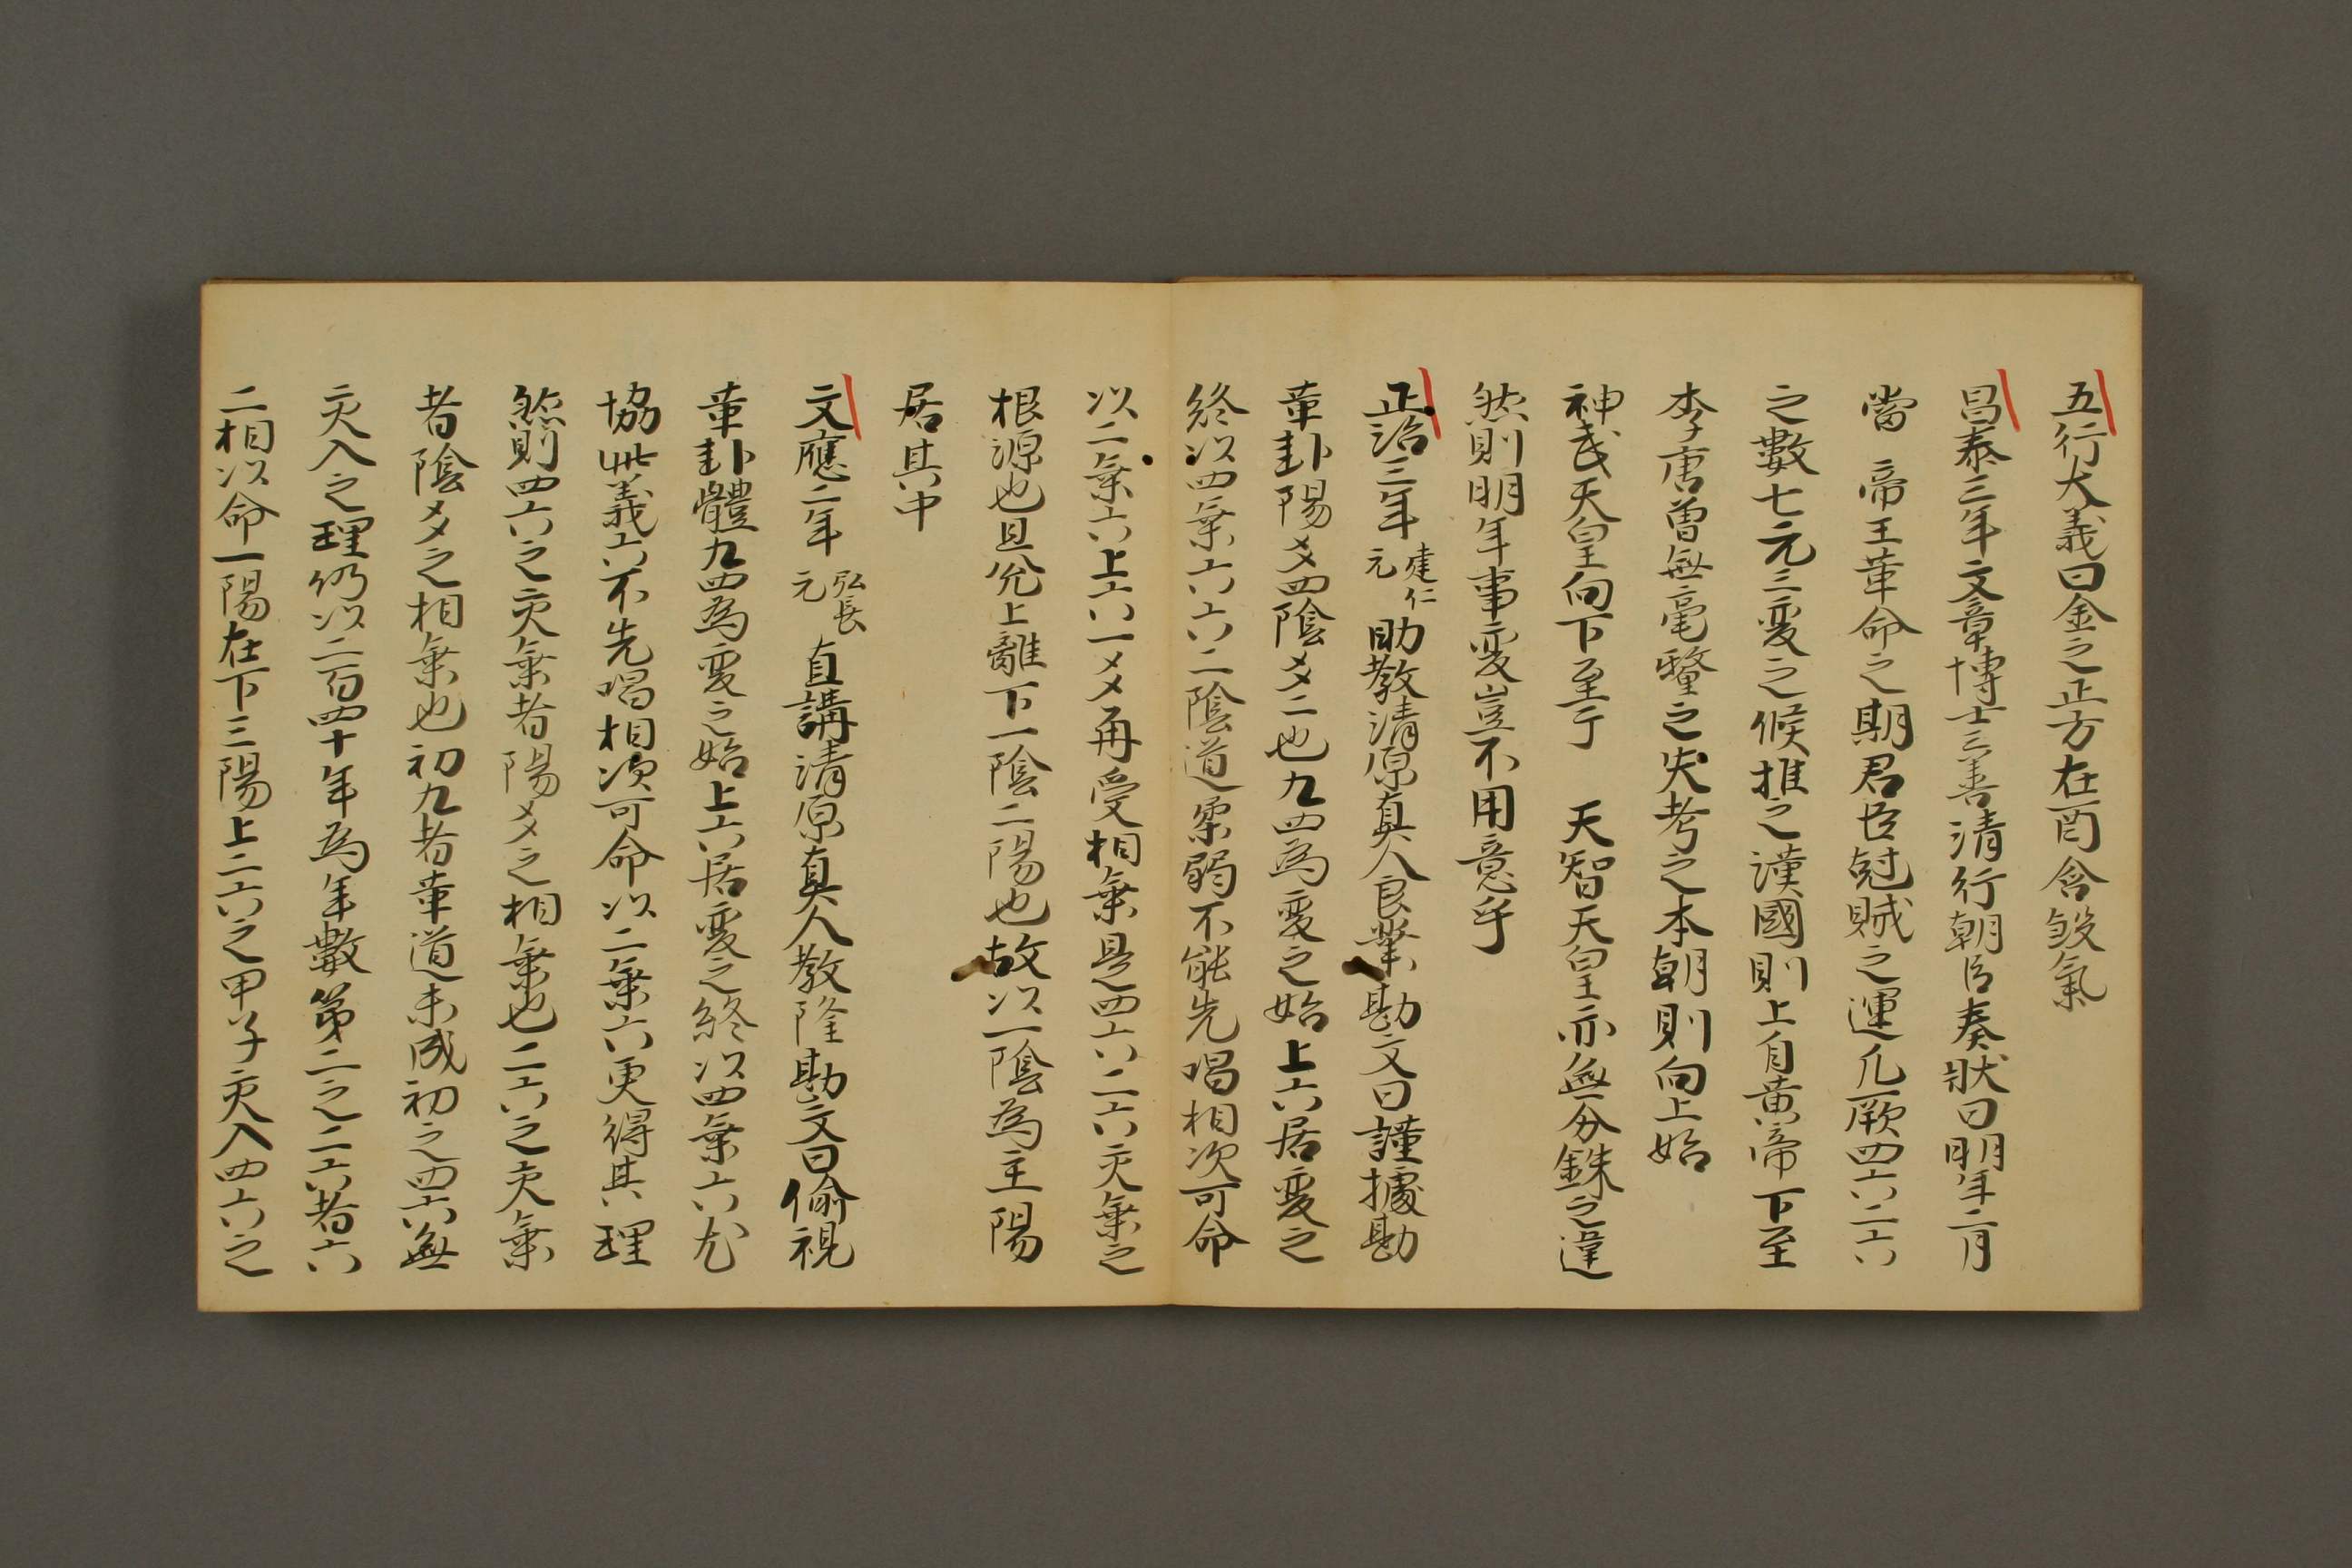 五行大義曰金之正方在酉含殺氣
昌泰三年文章博士三善清行朝臣奏狀曰明年二月
當 帝王革命之期君臣尅賊之運凡厥四六二六
之數七元三変之候推之漢國則上自黄帝下至
李唐曽無毫釐之失考之本朝則向上始
神武天皇向下至于 天智天皇亦無分銖之違
然則明年事変豈不用意乎
正治三年 建仁元 助教清原真人良業勘文曰謹據勘
革卦陽爻四陰爻二也九四為変之始上六居変之
終以四乗六六六二陰道柔弱不能先唱相次可命
以二乗六上六一爻再受相乗是四六二六交乗之
根源也且兊上離下一陰二陽也故以一陰為主陽
居其中
文應二年 弘長元 直講清原真人教隆勘文曰偷視
革卦體九四為変之始上六居変之終以四乗六尤
協此義六不先唱相次可命以二乗六更得其理
然則四六之交乗者陽爻之相乗也二六之交乗
者陰爻之相乗也初九者革道未成初之四六無
交入之理仍以二百四十年為年數第二之二六者六
二相以命一陽在下三陽上二六之甲子交入四六之